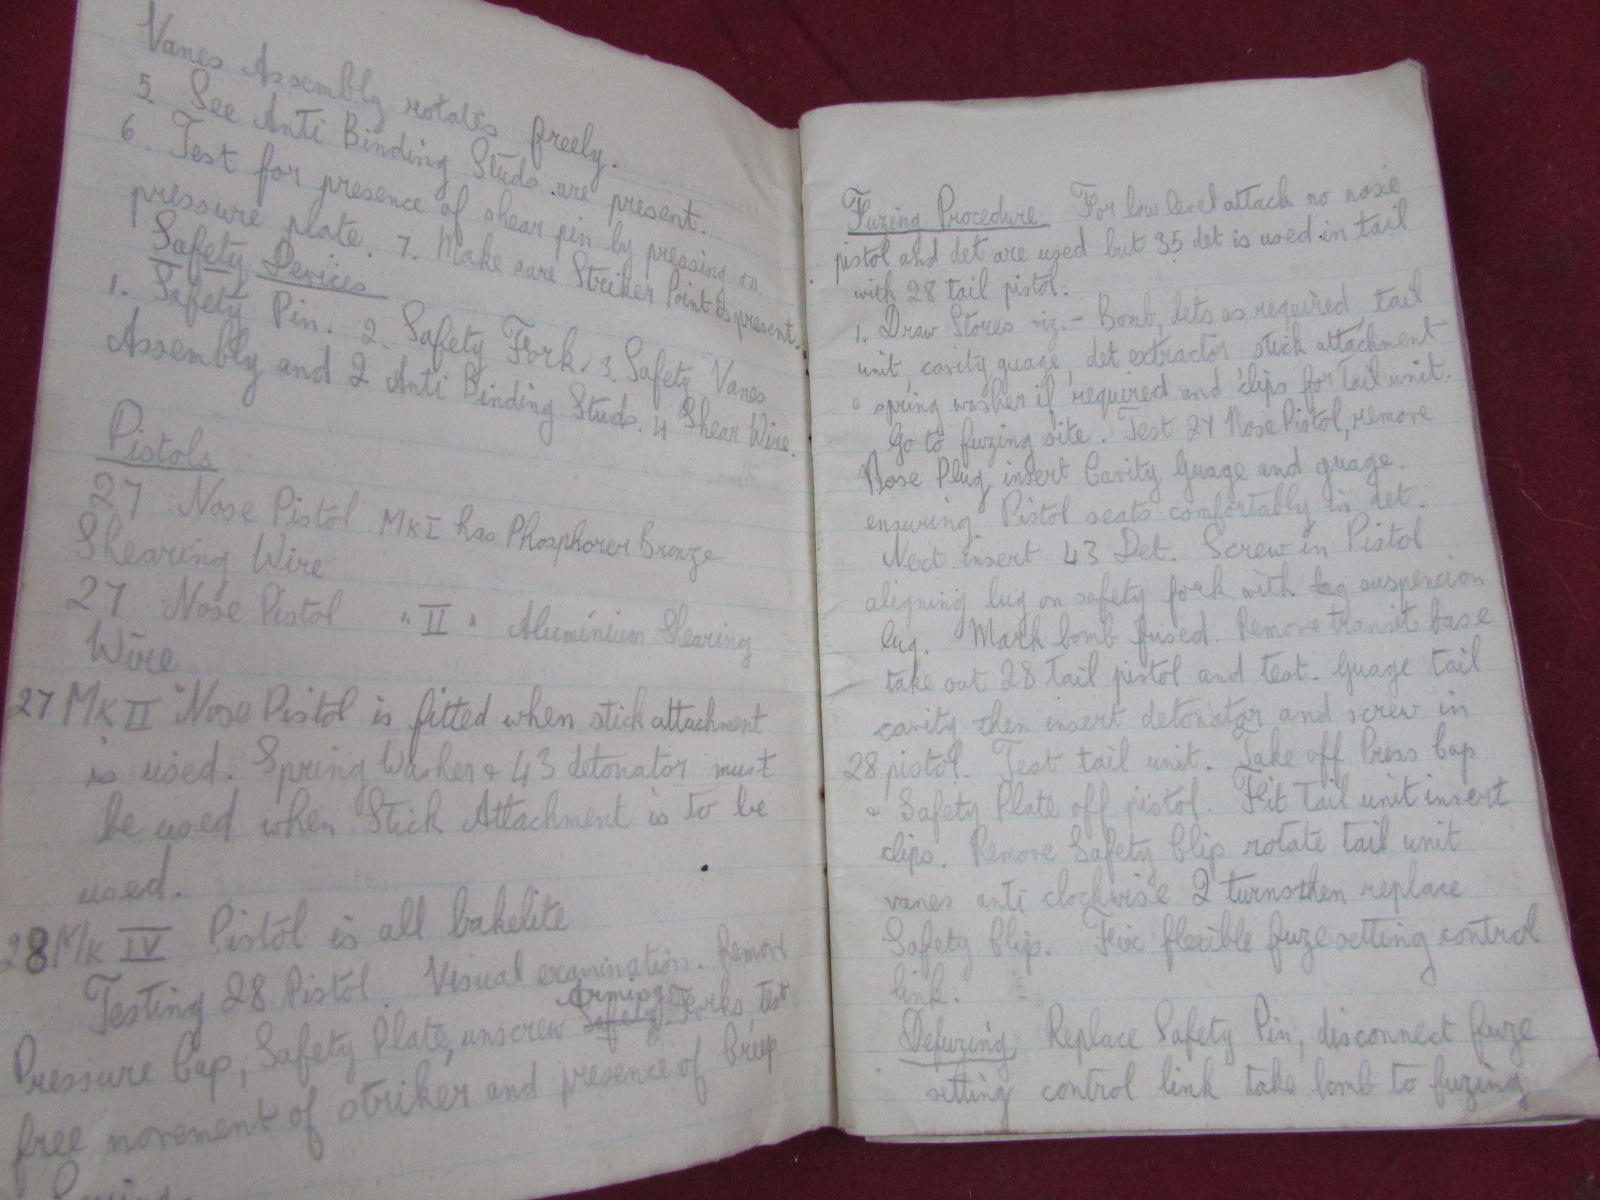 Vanes Assembly rotates freely.
5. See Anti Binding Studs are present.
6. Test for presence of shear pin by pressing on
pressure plate. 7. Make sure Striker Point is present.
Safety Devices
1. Safety Pin. 2. Safety Fork. 3. Safety Vanes
Assembly and 2 Anti Binding Studs. 4 Shear Wire.
Pistols
27 Nose Pistol Mk I has Phosphorer Bronze
Shearing Wire
27 Nose Pistol " II " Aluminium Shearing
Wire
27 Mk II Nose Pistol is fitted when stick attachment
is used. Spring Washer & 43 detonator must
be used when Stick Attachment is to be
used.
28 Mk IV Pistol is all bakelite
Testing 28 Pistol. Visual examination. Remove
Pressure Cap, Safety Plate, unscrew Safety Arming Forks, test
free movement of striker and presence of Creep
Fuzing Procedure For low level attack no nose
pistol and det are used but 35 det is used in tail
with 28 tail pistol.
1. Draw Stores viz.- Bomb, dets as required, tail
unit, cavity guage, det extractor stick attachment
& spring washer if required and clips for tail unit.
Go to fuzing site. Test 27 Nose Pistol, remove
Nose Plug, insert Cavity Guage and guage.
ensuring Pistol seats comfortably in det.
Next insert 43 Det. Screw in Pistol
aligning lug on safety fork with suspencion
lug. Mark bomb fused. Remove transit base
take out 28 tail pistol and test. Guage tail
cavity then insert detonator and screw in
28 pistol. Test tail unit. Take off Press Cap
& Safety Plate off pistol. Fit tail unit insert
clips. Remove Safety Clip rotate tail unit
vanes anti clockwise 2 turns then replace
Safety Clip. Fix flexible fuze setting control
link.
Defuzing Replace Safety Pin, disconnect fuze
setting control link take bomb to fuzing